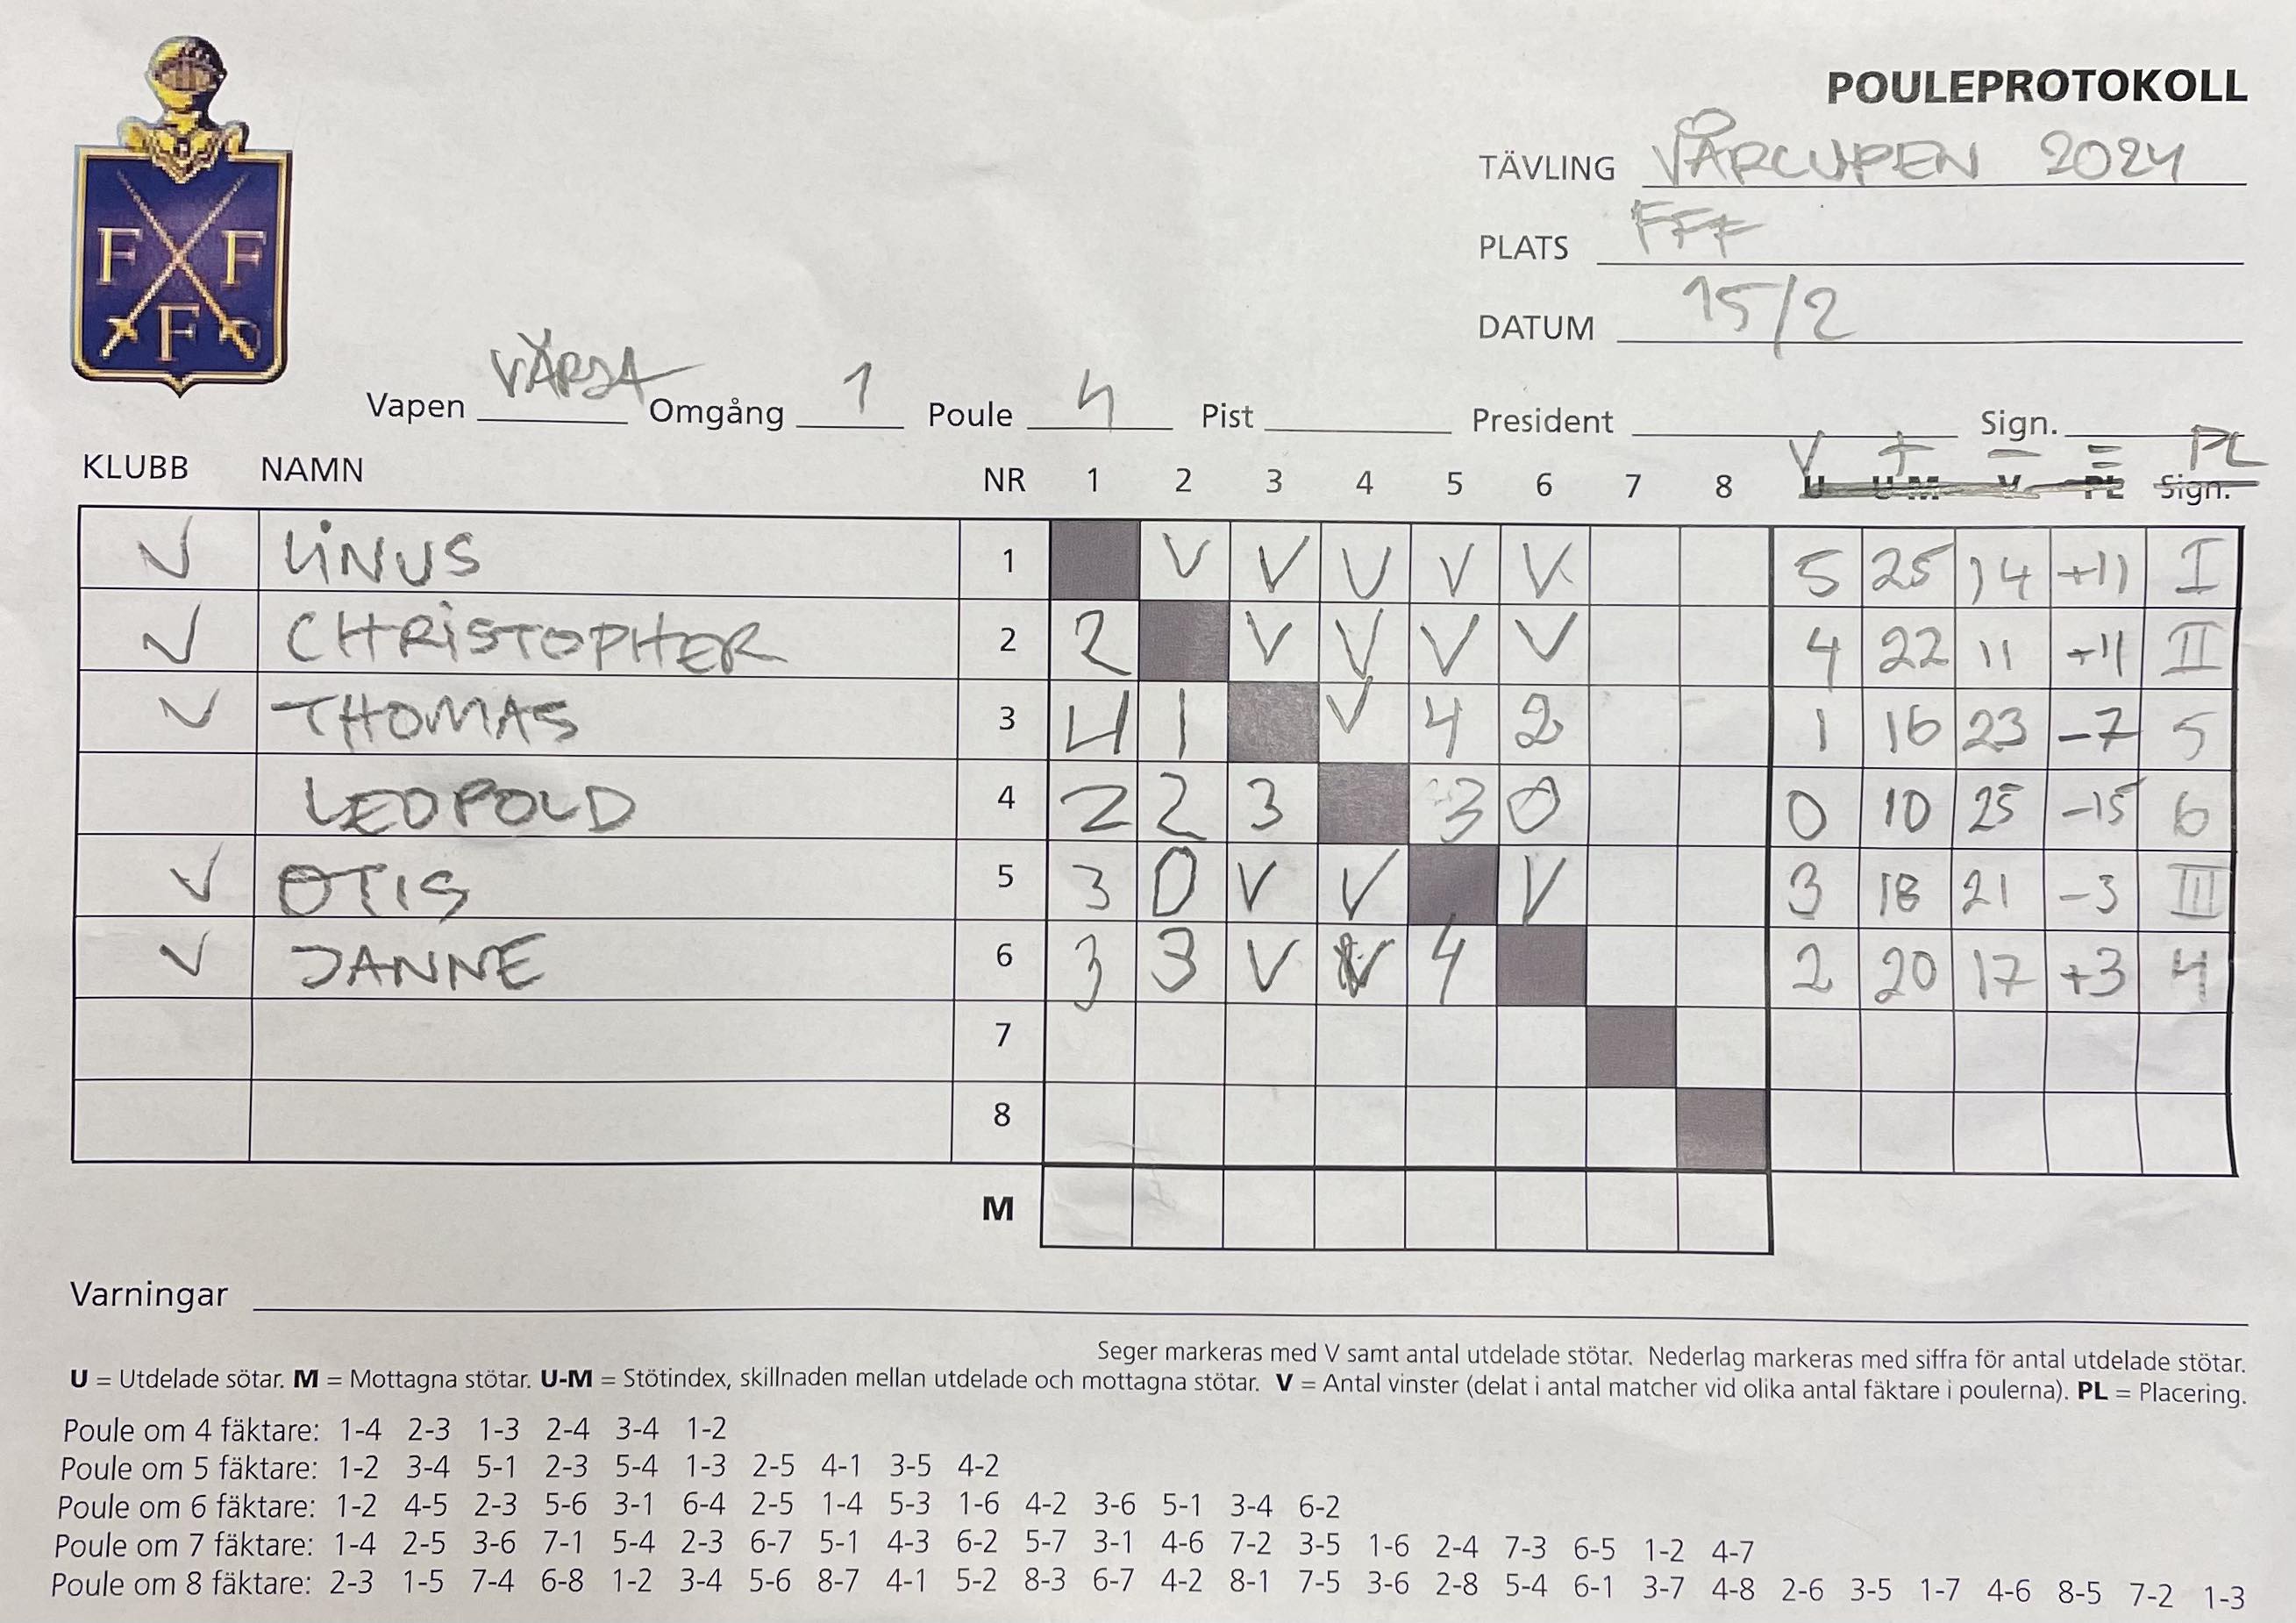 POULEPROTOKOLL
TÄVLING VÅRCUPEN 2024
PLATS FFF
DATUM 15/2
F F
F
Vapen VÄRJA Omgång 1 Poule 4 Pist President Sign.
V + - = PL
KLUBB NAMN NR 1 2 3 4 5 6 7 8 U U-M V PL Sign.
V LINUS 1 V V V V V 5 25 14 +11 I
V CHRISTOPHER 2 2 V V V V 4 22 11 +11 II
V THOMAS 3 4 1 V 4 2 1 16 23 -7 5
LEOPOLD 4 2 2 3 3 0 0 10 25 -15 6
V OTIS 5 3 0 V V V 3 18 21 -3 III
V JANNE 6 3 3 V V 4 2 20 17 +3 4
7
8
M
Varningar
Seger markeras med V samt antal utdelade stötar. Nederlag markeras med siffra för antal utdelade stötar.
U = Utdelade sötar. M = Mottagna stötar. U-M = Stötindex, skillnaden mellan utdelade och mottagna stötar. V = Antal vinster (delat i antal matcher vid olika antal fäktare i poulerna). PL = Placering.
Poule om 4 fäktare: 1-4 2-3 1-3 2-4 3-4 1-2
Poule om 5 fäktare: 1-2 3-4 5-1 2-3 5-4 1-3 2-5 4-1 3-5 4-2
Poule om 6 fäktare: 1-2 4-5 2-3 5-6 3-1 6-4 2-5 1-4 5-3 1-6 4-2 3-6 5-1 3-4 6-2
Poule om 7 fäktare: 1-4 2-5 3-6 7-1 5-4 2-3 6-7 5-1 4-3 6-2 5-7 3-1 4-6 7-2 3-5 1-6 2-4 7-3 6-5 1-2 4-7
Poule om 8 fäktare: 2-3 1-5 7-4 6-8 1-2 3-4 5-6 8-7 4-1 5-2 8-3 6-7 4-2 8-1 7-5 3-6 2-8 5-4 6-1 3-7 4-8 2-6 3-5 1-7 4-6 8-5 7-2 1-3